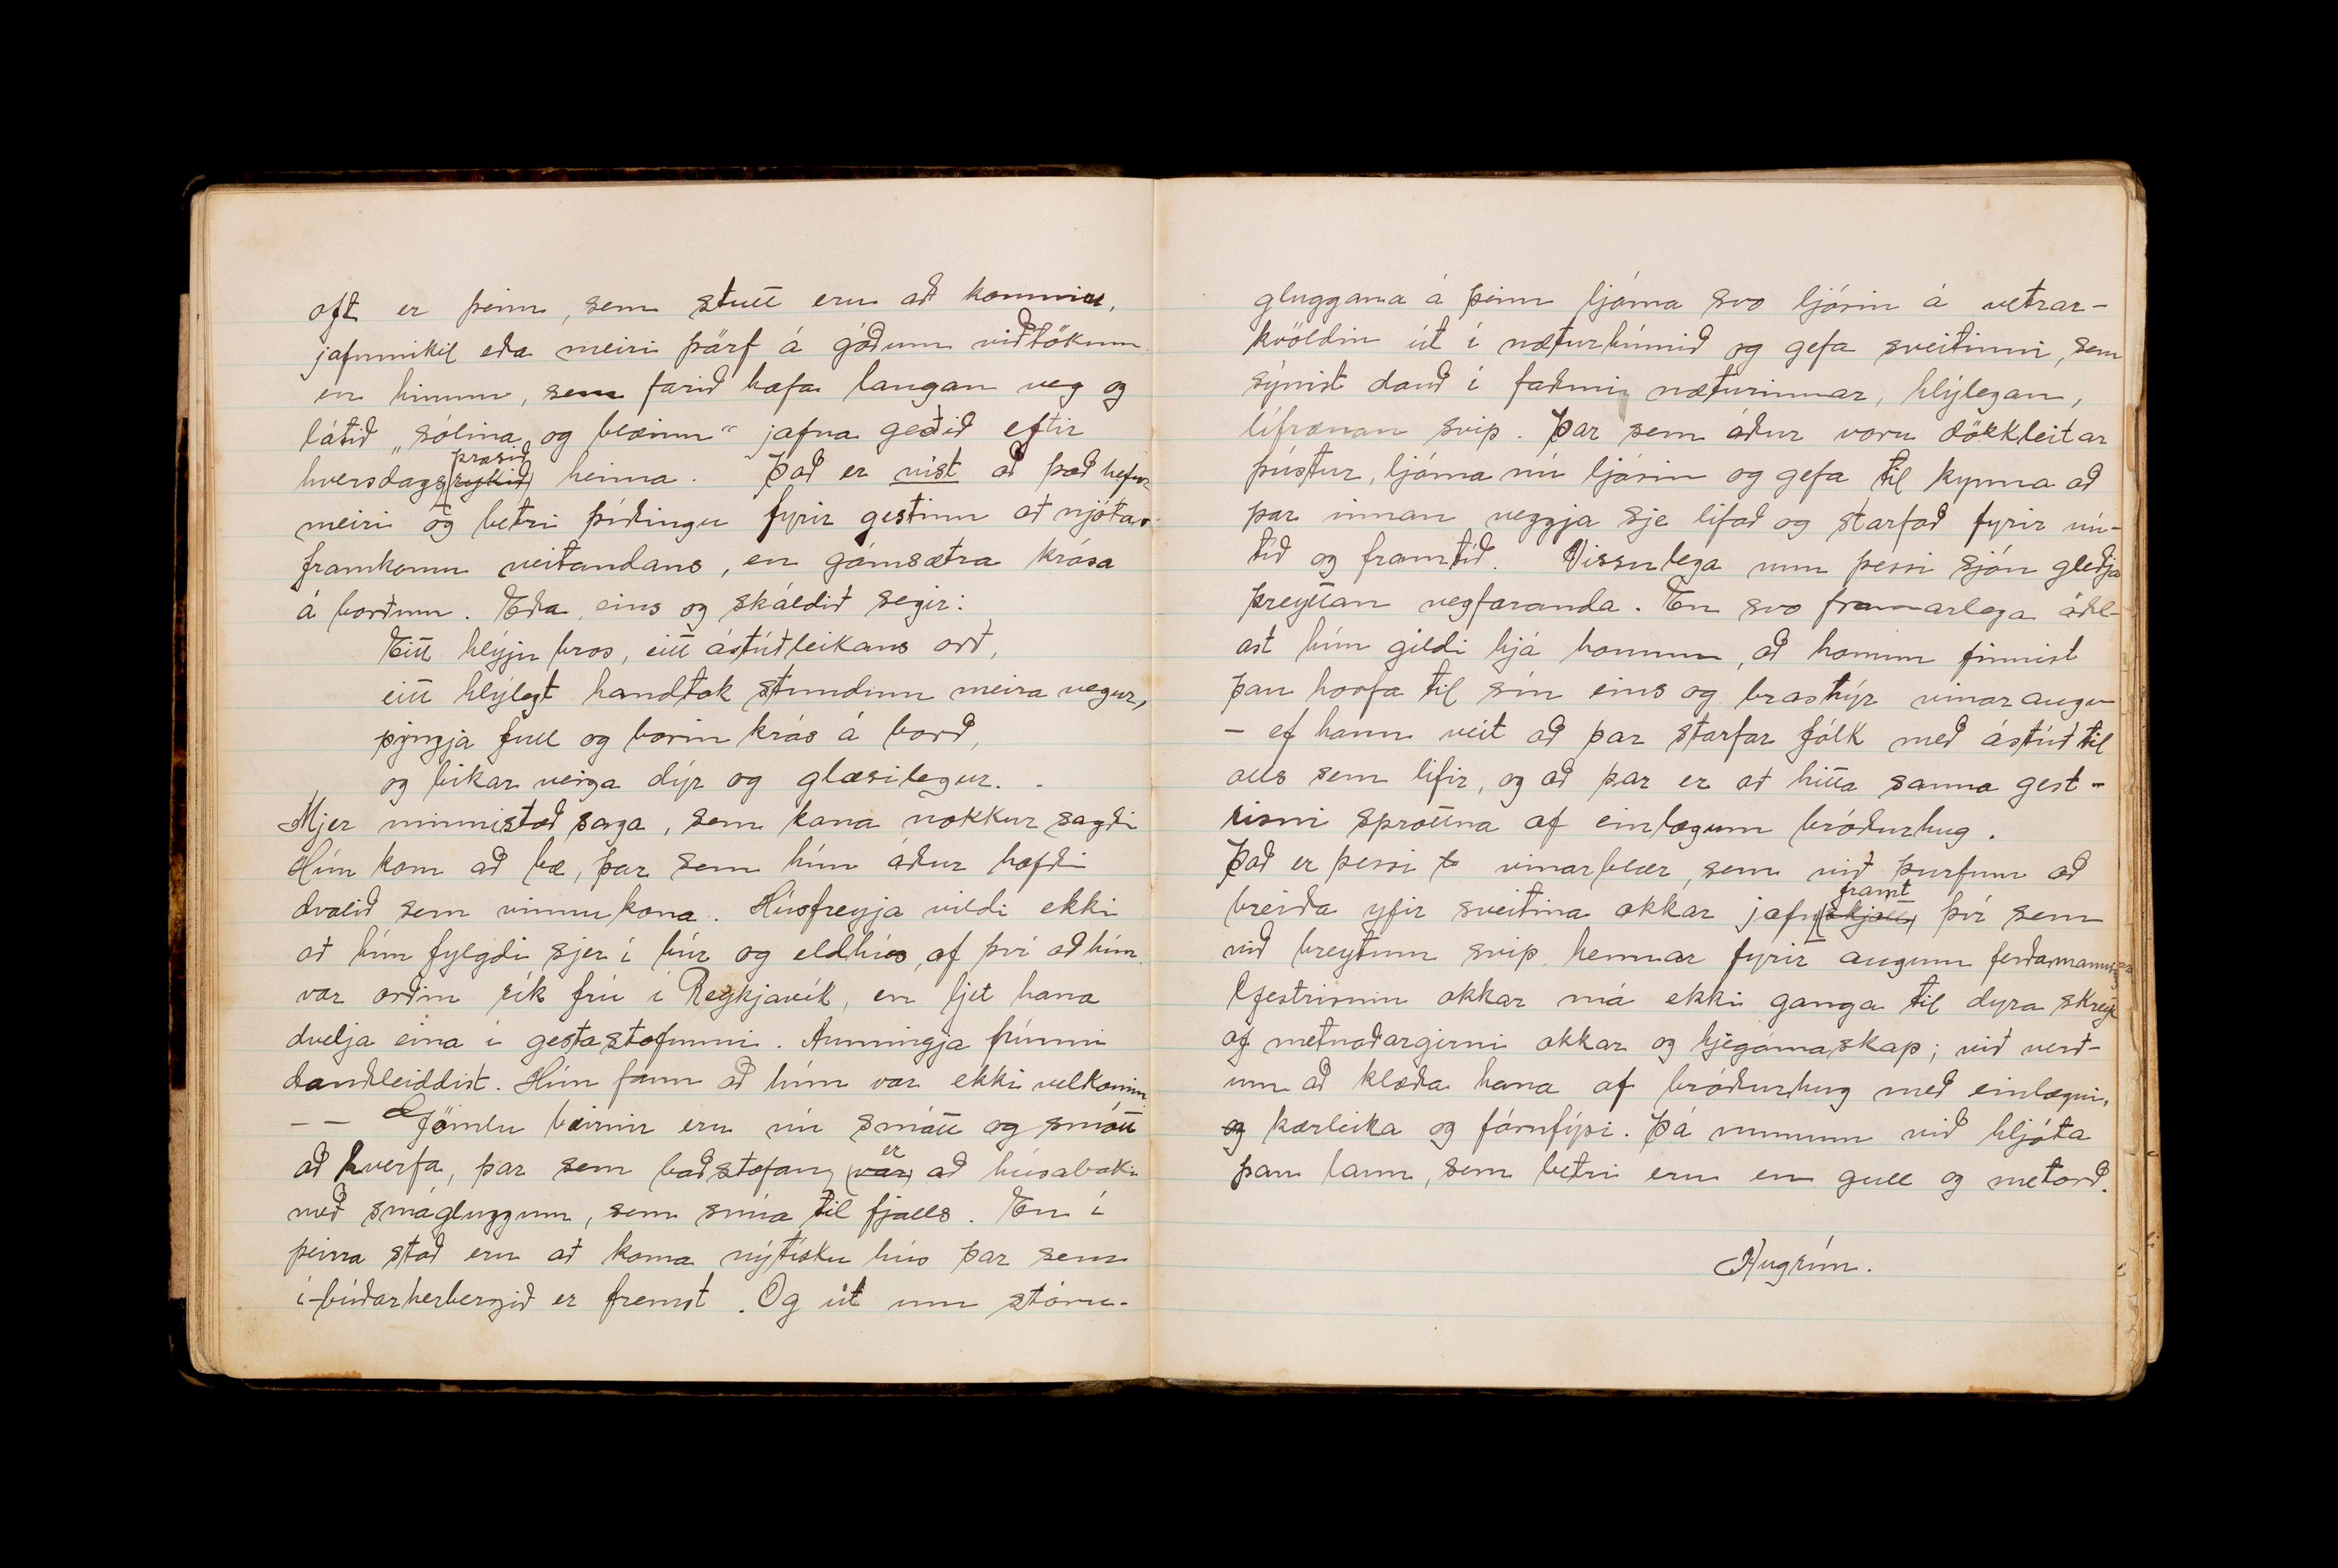 oft er þeim, sem stutt eru að komnir,
jafnmikil eða meiri þörf á góðum viðtökum
en hinum, sem farið hafa langan veg og
látið „sólina og blæinn“ jafna geðið eftir
hversdags (rykið) þrasið heima. Það er víst að það hefur
meiri og betri þíðingu fyrir gestinn at njóta
framkomu veitandans, en gómsætra krása
á borðum. Eða, eins og skáldið segir:
Eitt hlýju bros, eitt ástúðleikans orð,
eitt hlýlegt handtak stundum meira vegur,
pyngja full og borin krás á borð,
og bikar veiga dýr og glæsilegur.
Mjer minnistæð saga, sem kona nokkur sagði
Hún kom að bæ, þar sem hún áður hafði
dvalið sem vinnukona. Húsfreyja vildi ekki
at hún fylgdi sjer í búr og eldhús, af því að hún
var orðin rík frú í Reykjavík, en ljet hana
dvelja eina í gestastofunni. Aumingja frúnni
dauðleiddist. Hún fann að hún var ekki velkomin
– – Gömlu bæirnir eru nú smátt og smátt
að hverfa, þar sem baðstofan, (var) er að húsabaki
með smágluggum, sem snúa til fjalls. En í
þeirra stað eru at koma nýtísku hús þar sem
í-búðarherbergið er fremst. Og út um stóru-
gluggana á þeim ljóma svo ljósin á vetrar-
kvöldin út í næturhúmið og gefa sveitinni, sem
sýnist dauð í faðmi næturinnar, hlýlegan,
lífrænan svip. Þar sem áður voru dökkleitar
þústur, ljóma nú ljósin og gefa til kynna að
þar innan veggja sje lifað og starfað fyrir nú-
tíð og framtíð. Vissulega mun þessi sjón gleðja
þreyttan vegfaranda. En svo framarlega öðl-
ast hún gildi hjá honum, að honum finnist
þau horfa til sín eins og brashýr vinaraugu
– ef hann veit að þar starfar fólk með ástúð til
alls sem lifir, og að þar er at hitta sanna gest-
risni sprottna af einlægum bróðurhug.
Það er þessi to vinarblær, sem við þurfum að
breiða yfir sveitina okkar jafn framt því sem
við breytum svip hennar fyrir augum ferðamannsins
Gestrisnin okkar má ekki ganga til dyra skreytt
af metnaðargirni okkar og hjegómaskap; við verð-
um að klæða hana af bróðurhug með einlægni,
og kærleika og fórnfýsi. Þá munum við hljóta
þau laun, sem betri eru en gull og metorð.
Hugrún.